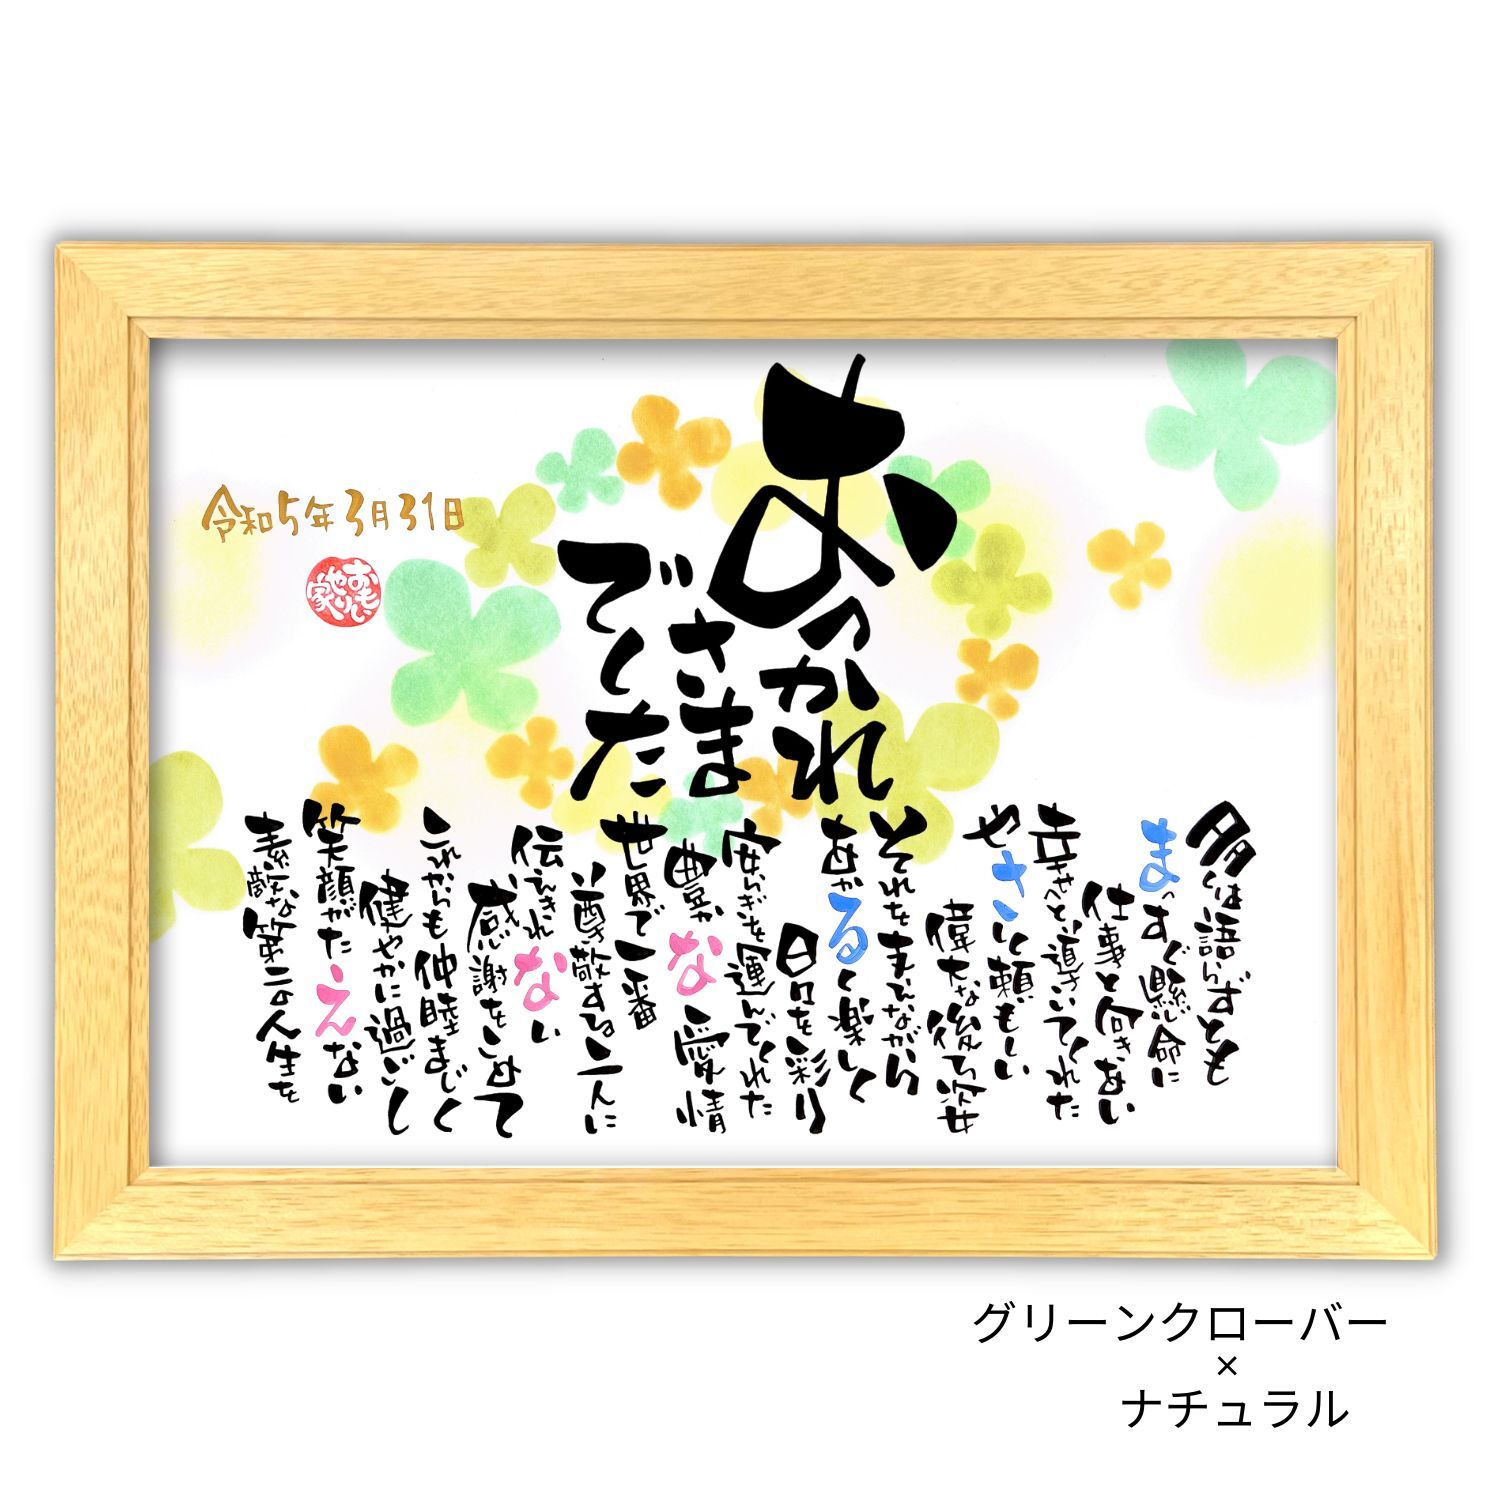 おつかれ
さま
でした
多くは語らずとも
まっすぐ懸命に
仕事と向きあい
幸せへと導いてくれた
やさしく頼もしい
偉大な後ろ姿
それを支えながら
あかるく楽しく
日々を彩り
安らぎを運んでくれた
豊かな愛情
世界で一番
尊敬する二人に
伝えきれない
感謝をこめて
これからも仲睦まじく
健やかに過ごし
笑顔がたえない
素敵な第二の人生を
令和5年3月31日
おもい
やり
家
グリーンクローバー
×
ナチュラル